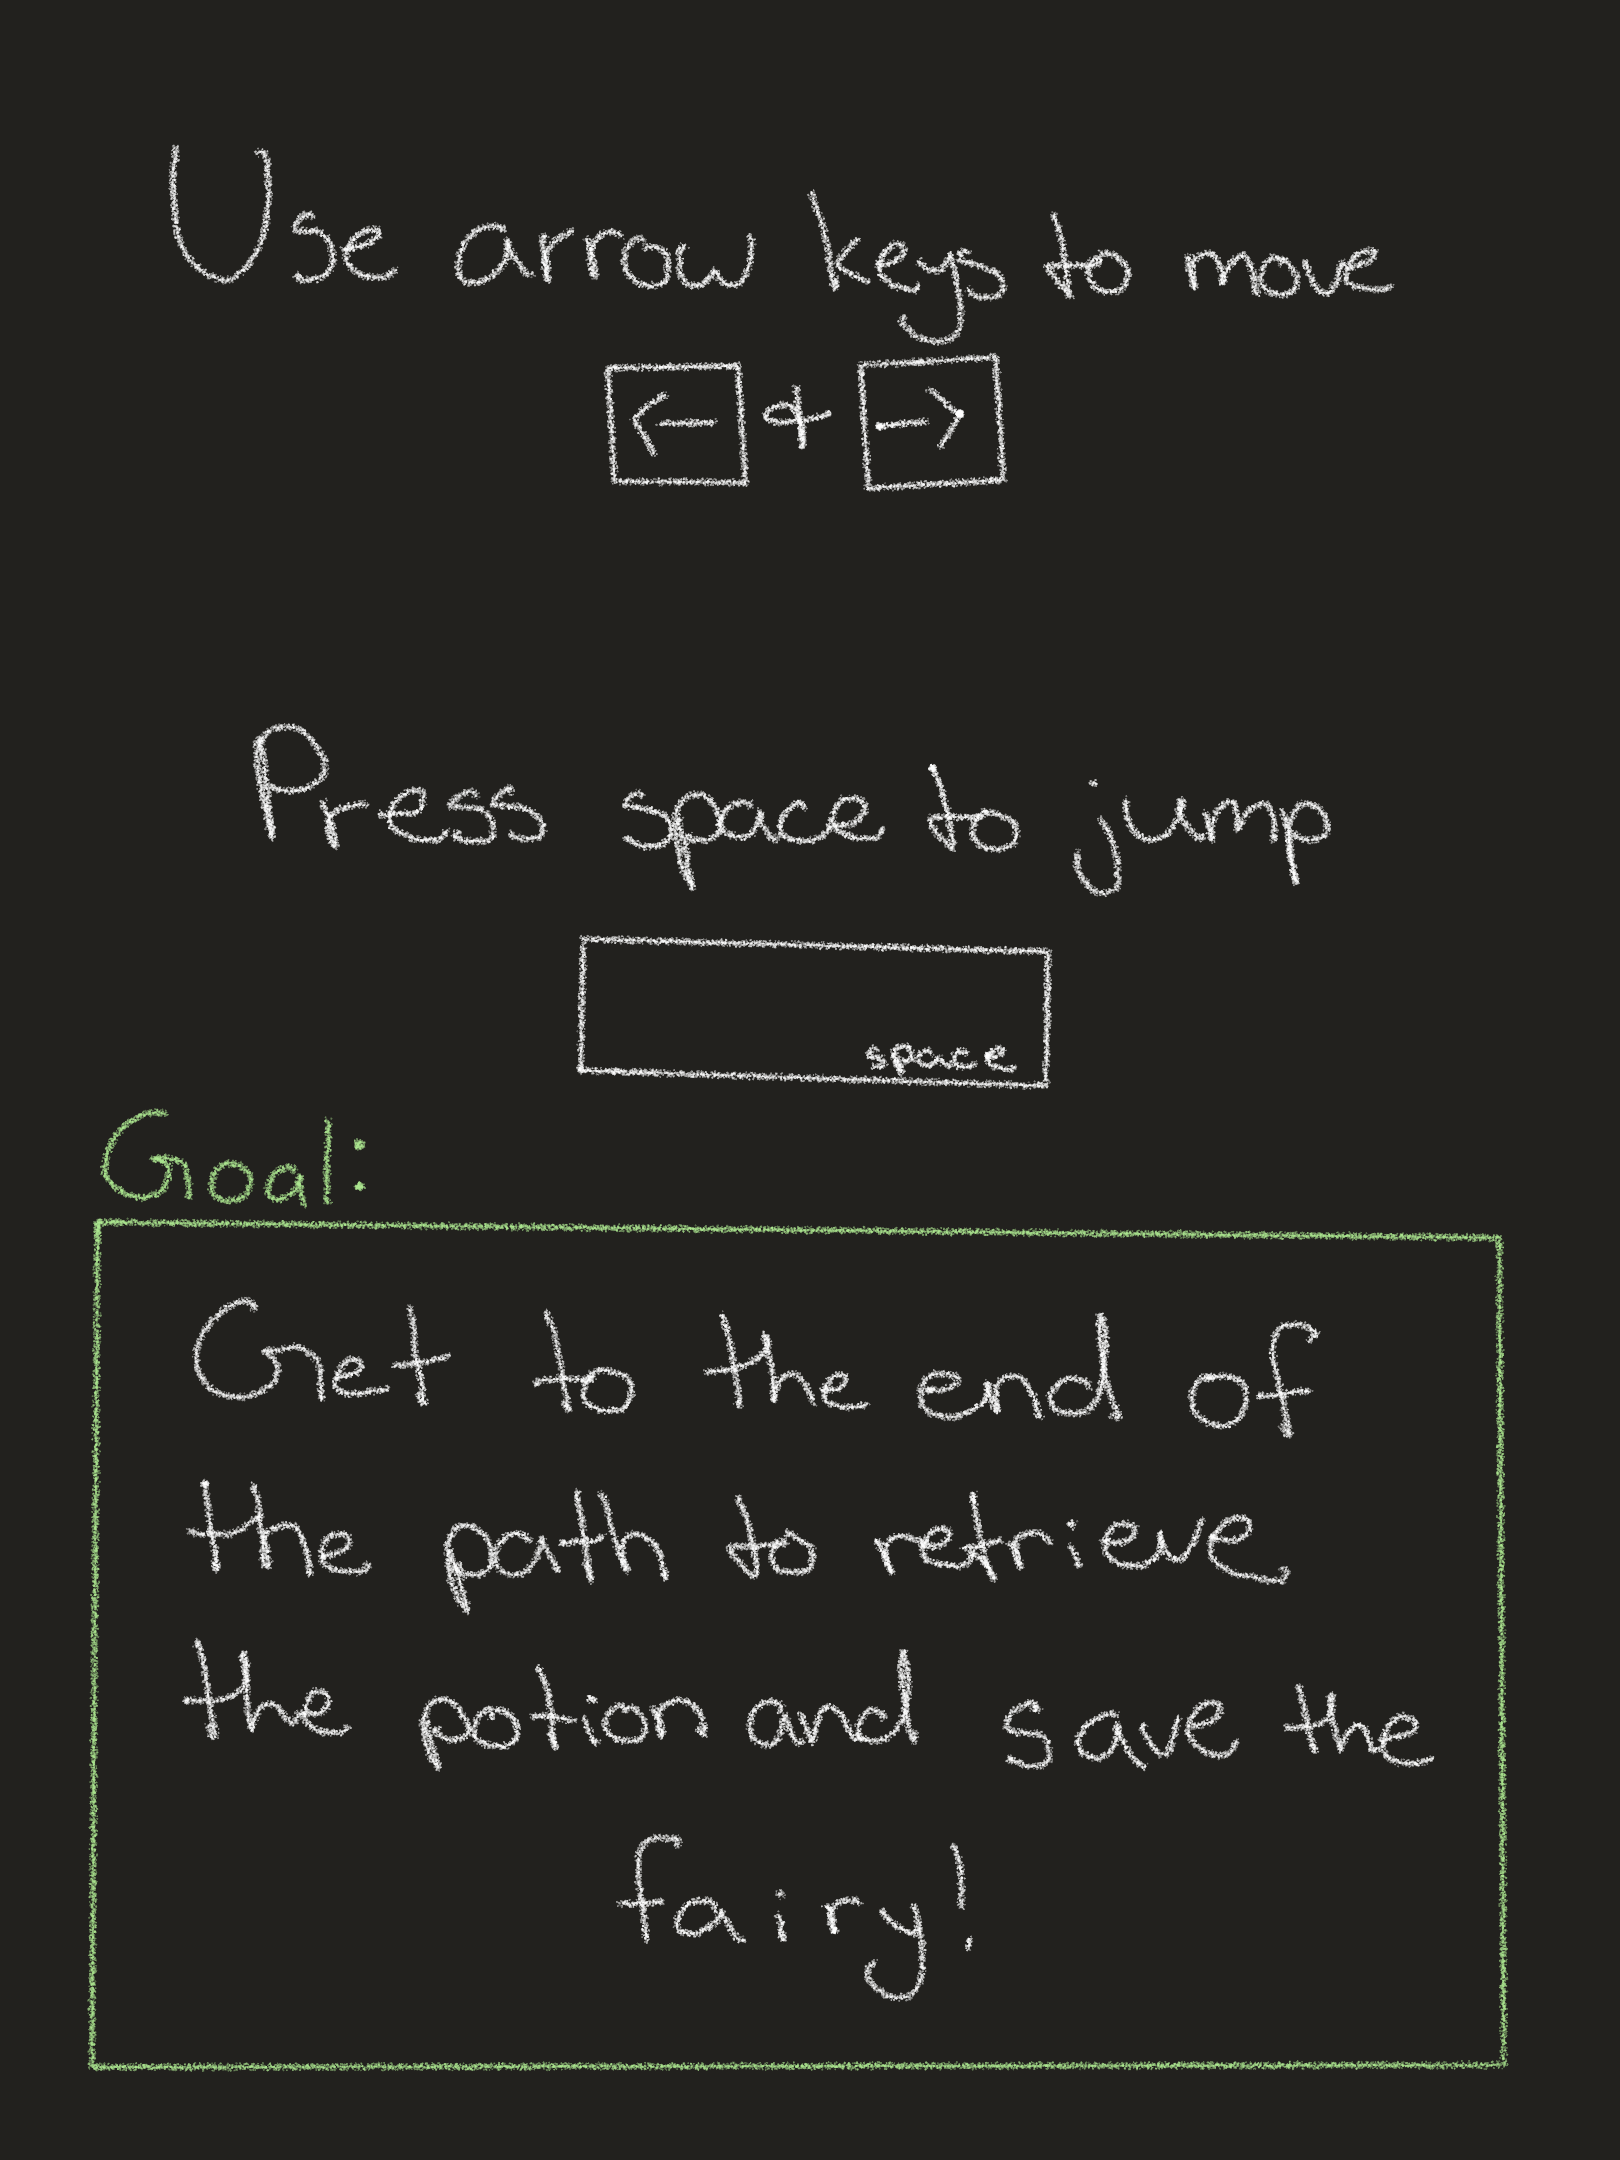 Use arrow keys to move
← & →
Press space to jump
space
Goal:
Get to the end of
the path to retrieve
the potion and save the
fairy!